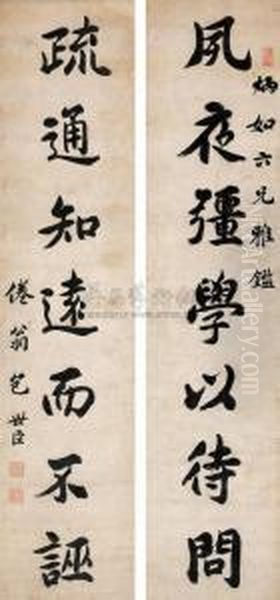 夙夜彊學以待問
炳如六兄雅鑑
疏通知遠而不誣
倦翁包世臣